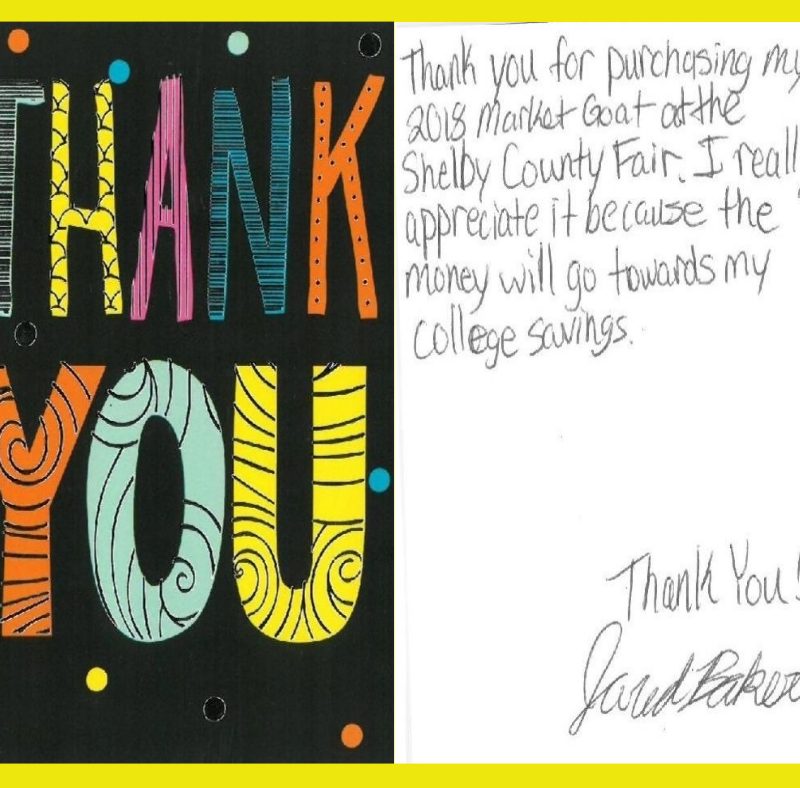 THANK
YOU
Thank you for purchasing my
2018 Market Goat at the
Shelby County Fair. I reall
appreciate it because the
money will go towards my
college savings.
Thank You!
Jared Baker